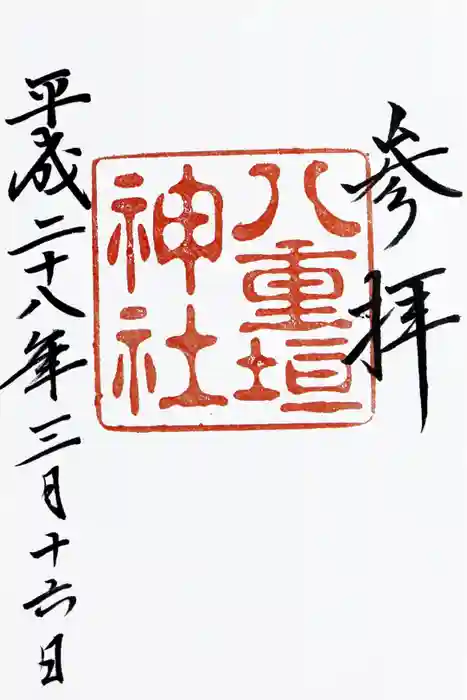 参拝
八重垣
神社
平成二十八年三月十六日